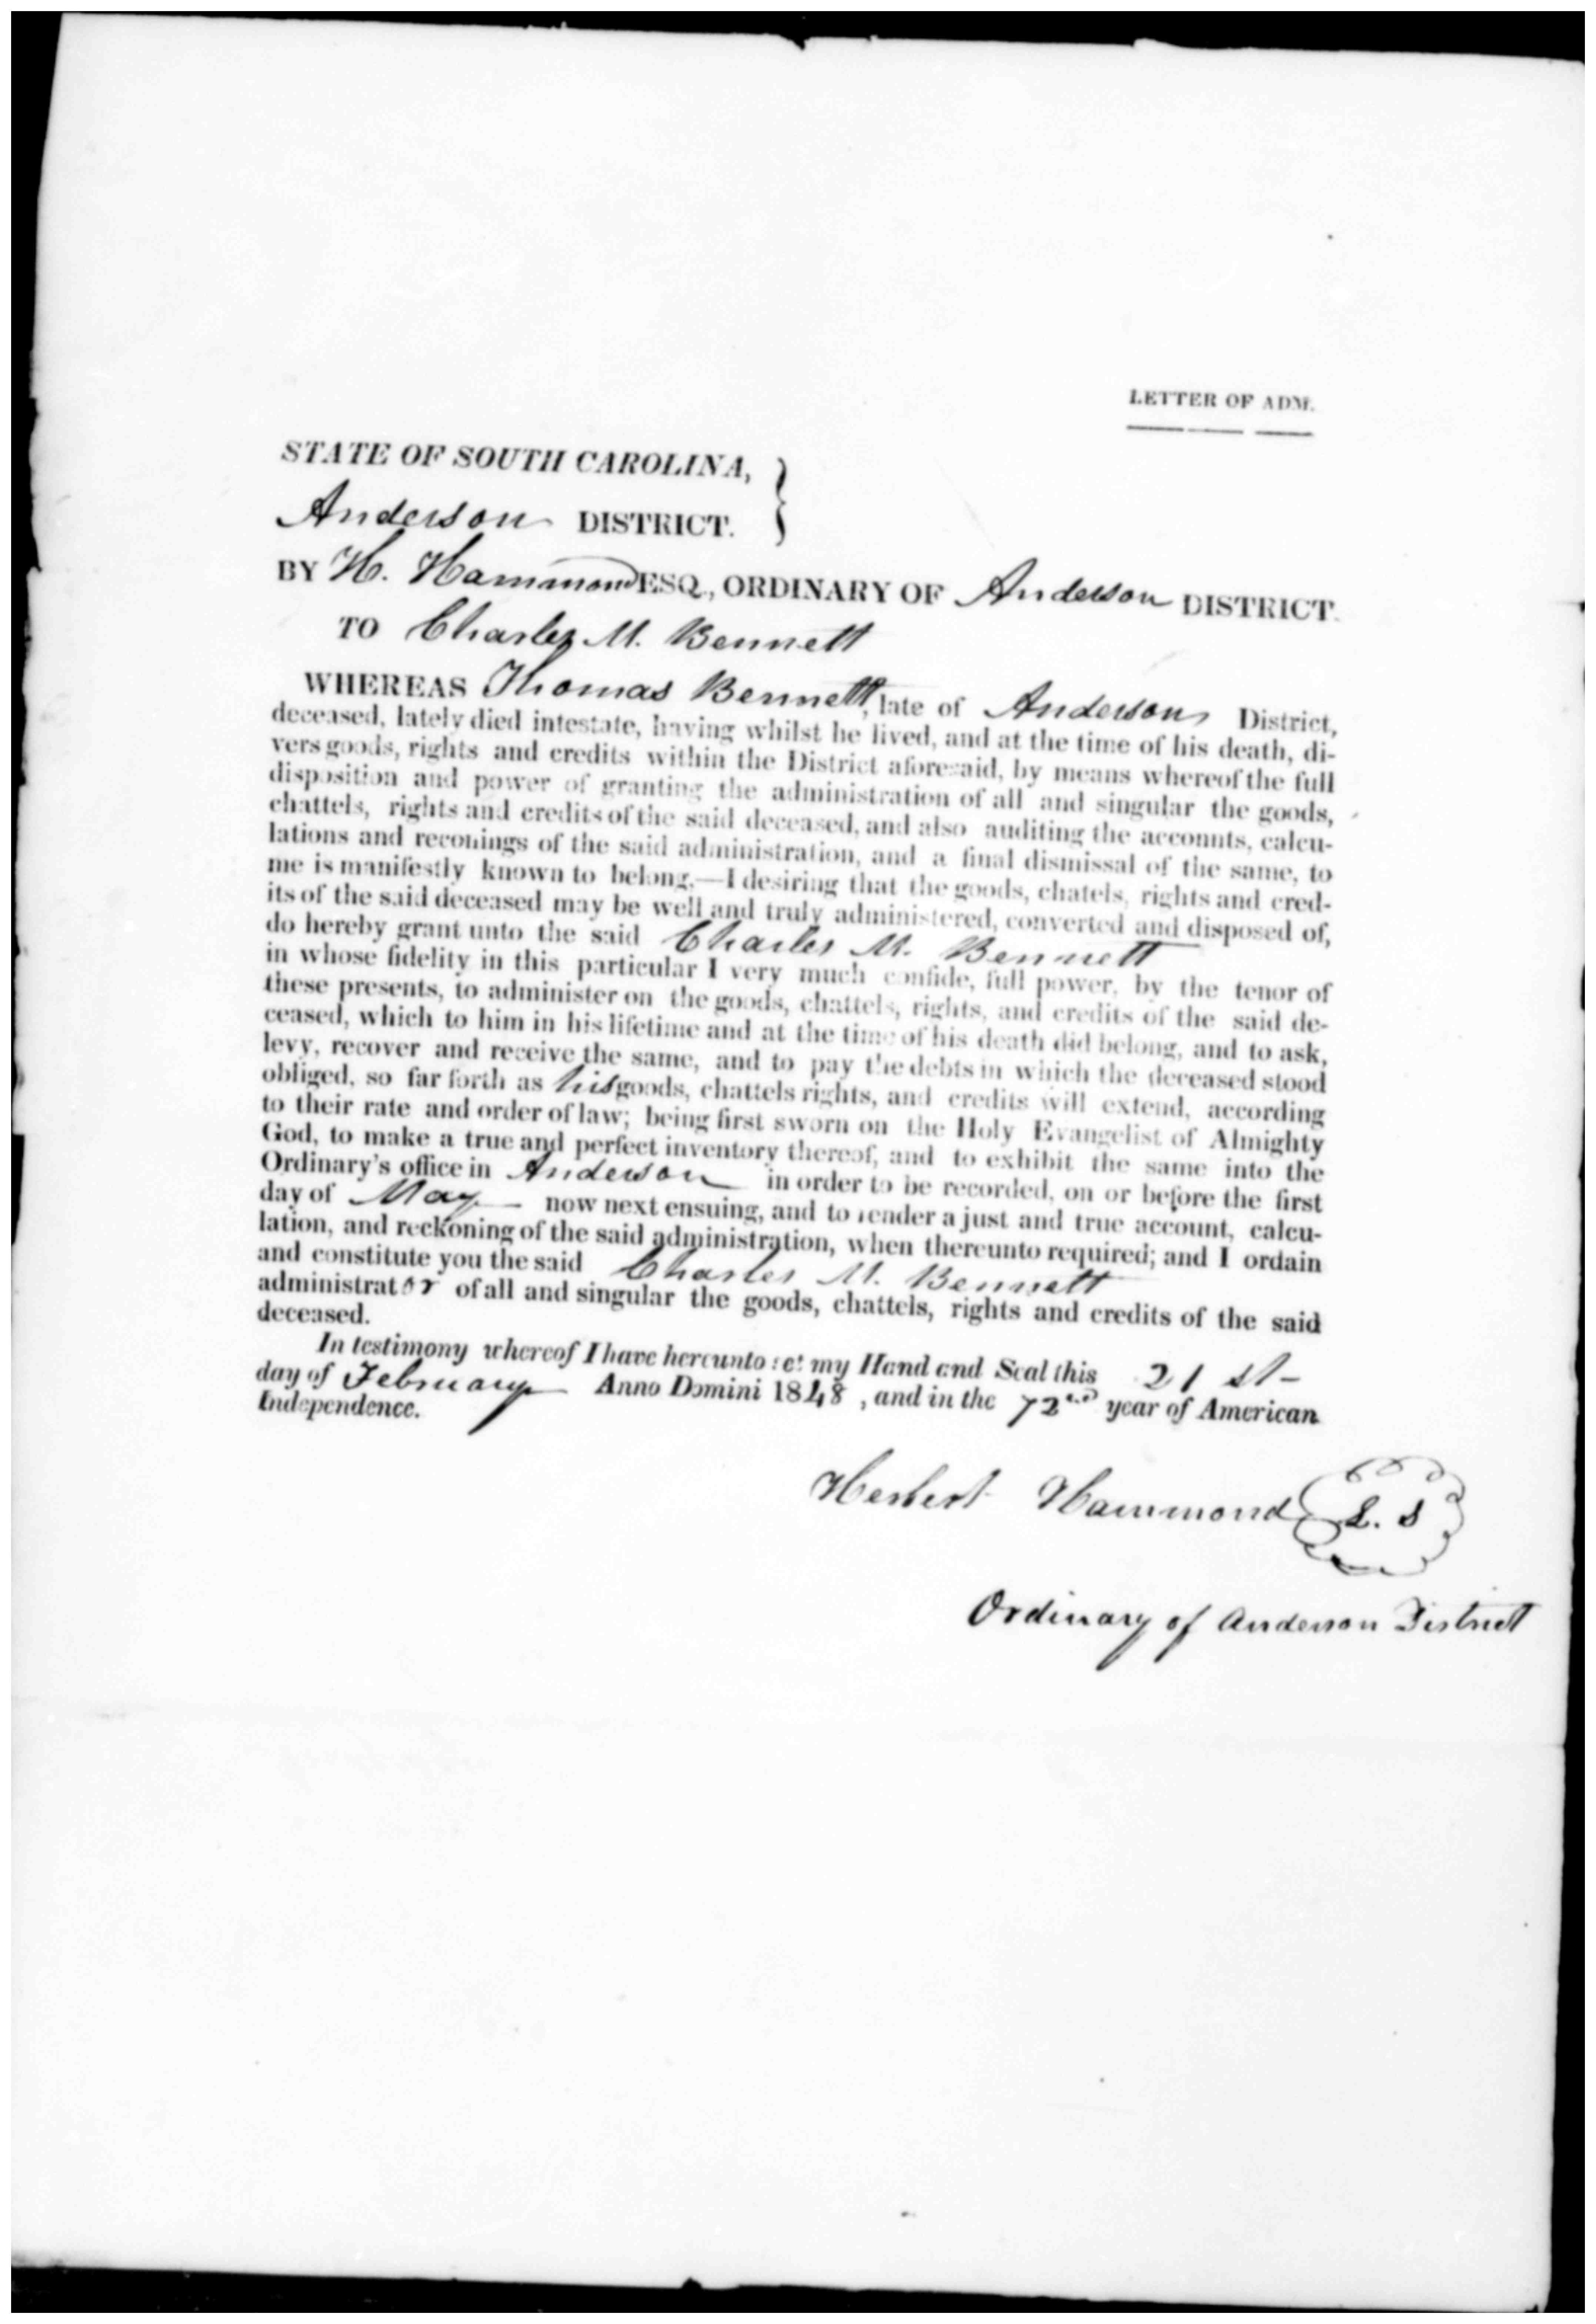 LETTER OF ADM.
STATE OF SOUTH CAROLINA,
Anderson DISTRICT.
BY H. Hammond ESQ., ORDINARY OF Anderson DISTRICT.
TO Charles M. Bennett
WHEREAS Thomas Bennett, late of Anderson District,
deceased, lately died intestate, having whilst he lived, and at the time of his death, di-
vers goods, rights and credits within the District aforesaid, by means whereof the full
disposition and power of granting the administration of all and singular the goods,
chattels, rights and credits of the said deceased, and also auditing the accounts, calcu-
lations and reconings of the said administration, and a final dismissal of the same, to
me is manifestly known to belong.—I desiring that the goods, chatels, rights and cred-
its of the said deceased may be well and truly administered, converted and disposed of,
do hereby grant unto the said Charles M. Bennett
in whose fidelity in this particular I very much confide, full power, by the tenor of
these presents, to administer on the goods, chattels, rights, and credits of the said de-
ceased, which to him in his lifetime and at the time of his death did belong, and to ask,
levy, recover and receive the same, and to pay the debts in which the deceased stood
obliged, so far forth as his goods, chattels rights, and credits will extend, according
to their rate and order of law; being first sworn on the Holy Evangelist of Almighty
God, to make a true and perfect inventory thereof, and to exhibit the same into the
Ordinary's office in Anderson in order to be recorded, on or before the first
day of May now next ensuing, and to render a just and true account, calcu-
lation, and reckoning of the said administration, when thereunto required; and I ordain
and constitute you the said Charles M. Bennett
administrator of all and singular the goods, chattels, rights and credits of the said
deceased.
In testimony whereof I have hereunto set my Hand and Seal this 21 st
day of February Anno Domini 1848, and in the 72nd year of American
Independence.
Herbert Hammond L. S
Ordinary of Anderson District